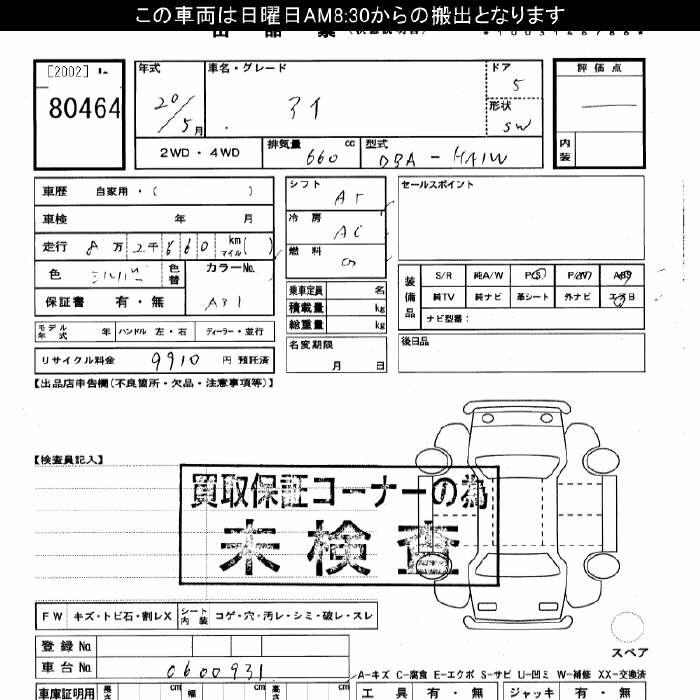 この車両は日曜日AM8:30からの搬出となります
[2002]
80464
年式
20/5月
車名・グレード
アイ
ドア
5
形状
SW
評価点
内装
2WD・4WD
排気量 660 cc
型式
DBA - HA1W
車歴 自家用・( )
車検 年 月
走行 8万2千660 km マイル ( )
色 シルバー 色替 カラーNo. A31
保証書 有・無
モデル年式 年 ハンドル 左・右 ディーラー・並行
リサイクル料金 9910 円 預託済
シフト AT
冷房 AC
燃料
乗車定員 名
積載量 kg
総重量 kg
名変期限 月 日
セールスポイント
装備品
S/R 純A/W P/S P/W ABS
純TV 純ナビ 革シート 外ナビ エアB
ナビ型番:
後日品
【出品店申告欄(不良箇所・欠品・注意事項等)】
【検査員記入】
買取保証コーナーの為
未検査
FW キズ・トビ石・割レX シート内装 コゲ・穴・汚レ・シミ・破レ・スレ
登録No.
車台No. 0600931
スペア
A-キズ C-腐食 E-エクボ S-サビ U-凹ミ W-補修 XX-交換済
車庫証明用 長さ cm 幅 cm 高さ cm
工具 有・無 ジャッキ 有・無